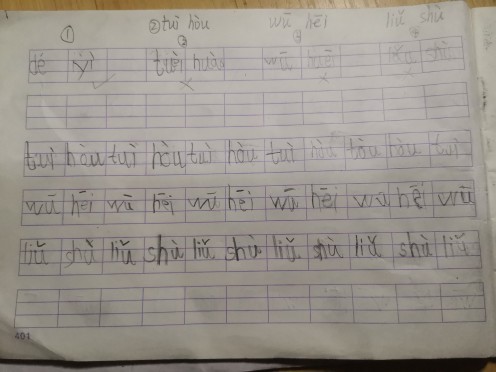 ① ②tuì hòu wū hēi liǔ shù
③ ③
dé yì tuèi huò wū hēi liǔ shù
tuì hòu tuì hòu tuì hòu tuì hòu tòu hòu tuì
wū hēi wū hēi wū hēi wū hēi wū hēi wū
liǔ shù liǔ shù liǔ shù liǔ shù liǔ shù liǔ
401